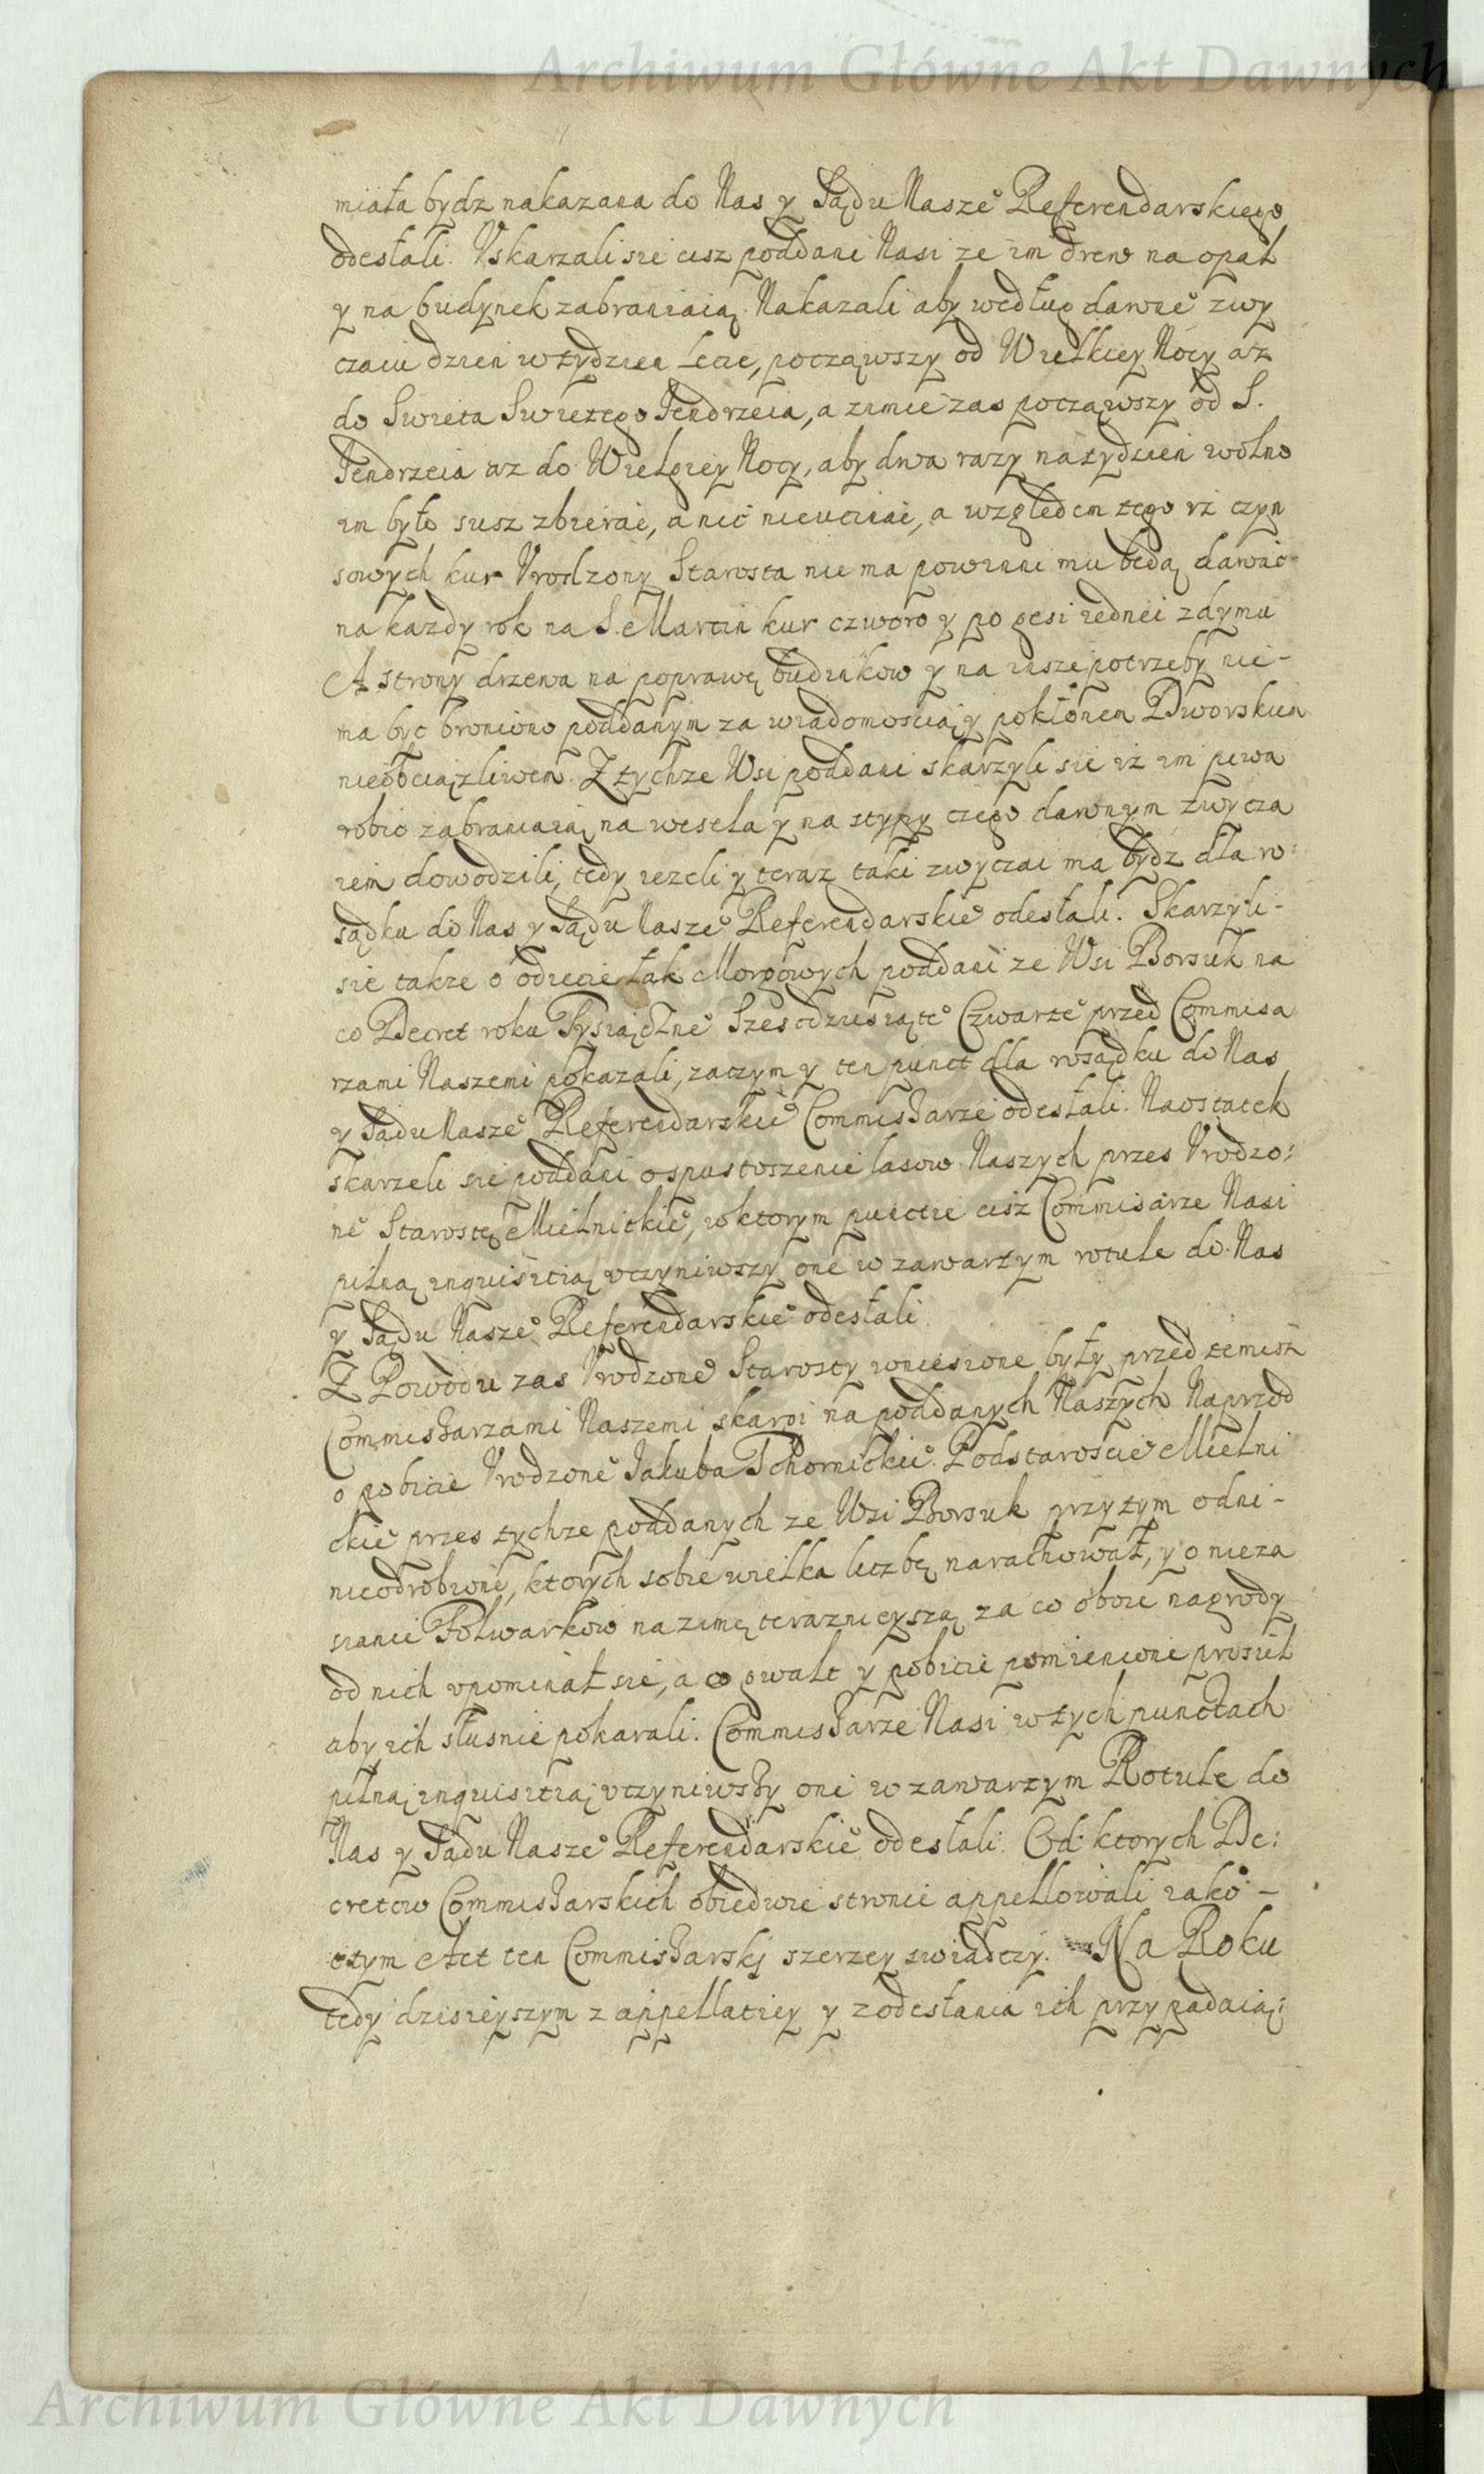 Archiwum Główne Akt Dawnych
miała bydz nakazana do Nas y Sądu Nasze° Referendarskiego
odesłali. Vskarzali sie cisz poddani Nasi ze im drew na opał
y na budynek zabraniaią. Nakazali aby według dawne° zwy
czaiu dzien w tydzien Lecie, począwszy od Wielkiey Nocy az
do Swieta Swietego Jendrzeia, a zimie zas począwszy od S.
Jendrzeia az do Wielgiey Nocy, aby dwa razy na tydzien wolno
im było susz zbierac, a nic nieucinac, a względem tego iz czyn
sowych kur Vrodzony Starosta nie ma powinni mu będą dawac
na kazdy rok na S. Marcin kur czworo y po gesi iednei z dymu
A strony drzewa na poprawę budinkow y na insze potrzeby nie-
ma byc broniono poddanym za wiadomoscią y pokłonem Dworskim
nieobciązliwem. Z tychze Wsi poddani skarzyli sie iz im piwa
robic zabraniaią na wesela y na stypy czego dawnym zwycza
iem dowodzili, tedy iezeli y teraz taki zwyczai ma bydz dla ro:
sądku do Nas y Sądu Nasze° Referendarskie° odesłali. Skarzyli-
sie takze o odięcie łak Morgowych poddani ze Wsi Borsuk na
co Decret roku Tysiączne° Szescdziesiąte° Czwarte° przed Commisa
rzami Naszemi pokazali, zaczym y ten punct dla rosądku do Nas
y Sadu Nasze° Referendarskie° Commissarze odesłali. Naostatek
skarzeli sie poddani o spustoszenie lasow Naszych przes Vrodzo:
ne° Starostę Mielnickie°, w ktorym puncie cisz Commisarze Nasi
pilną inquisitią vczyniwszy one w zawartym rotule do Nas
y Sądu Nasze° Referendarskie° odesłali.
Z Powodu zas Vrodzone° Starosty wniesione były przed temisz
Commissarzami Naszemi skargi na poddanych Naszych Naprzod
o pobicie Vrodzone° Jakuba Tchornickie° Podstaroscie° Mielni
ckie° przes tychze poddanych ze Wsi Borsuk przytym o dni-
nieodrobione, ktorych sobie wielka liczbę narachował, y o nieza
sianie Folwarkow na zimę teraznieyszą za co oboie nagrody
od nich vpominał sie, a o gwałt y pobicie pomienione prosieł
aby ich słusnie pokarali. Commissarze Nasi w tych punctach
pilną inquisitią vczyniwszy one w zawartym Rotule do
Nas y Sądu Nasze° Referendarskie° odesłali. Od ktorych De:
cretow Commissarskich obiedwie stronie appellowali iako-
o tym Act ten Commissarskj szerzey swiadczy. Na Roku
tedy dzisieyszym z appellatiey y z odesłania ich przypadaią:
Archiwum Główne Akt Dawnych